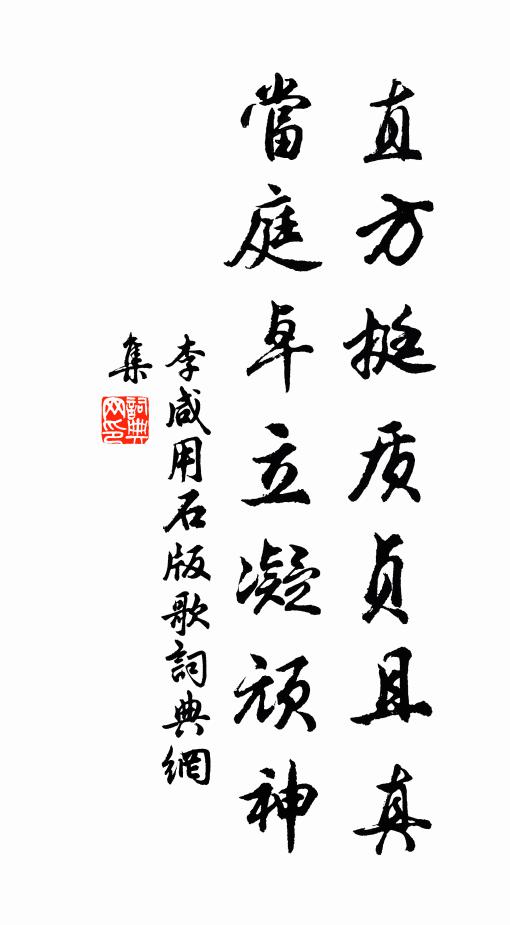 直方挺质贞且真
當庭卓立凝顽神
李咸用石版歌詞典網
集
詞典网印